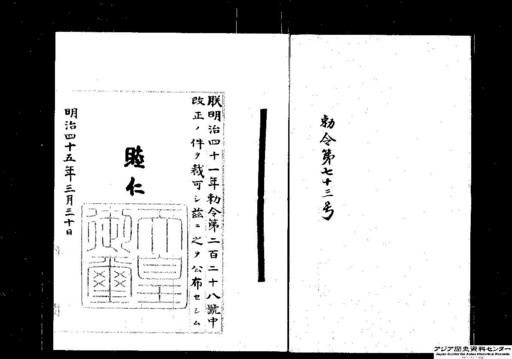 勅令第七十三号
朕明治四十一年勅令第二百二十八號中
改正ノ件ヲ裁可シ茲ニ之ヲ公布セシム
睦仁
天皇御璽
明治四十五年三月三十日
アジア歴史資料センター
Japan Center for Asian Historical Records